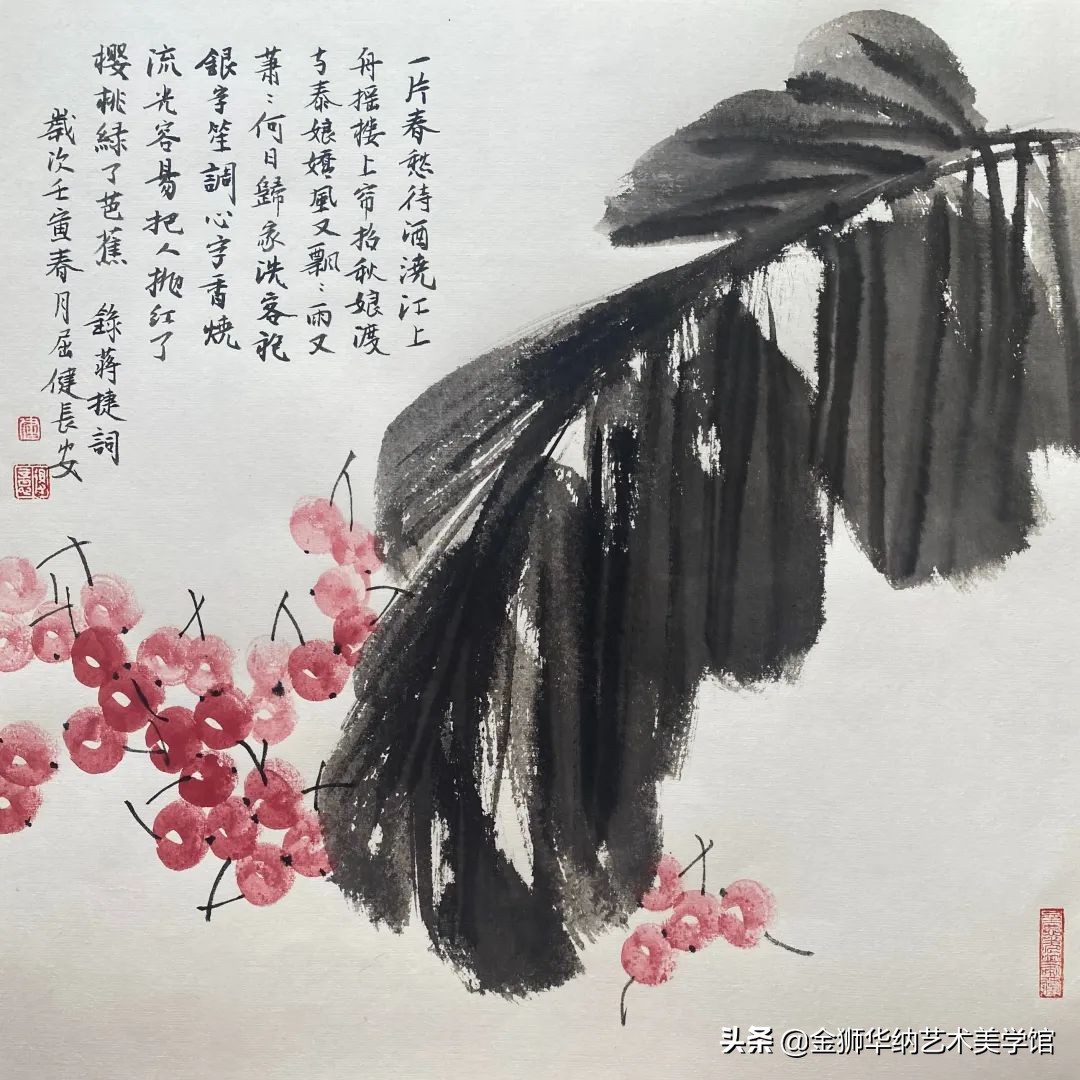 一片春愁待酒澆江上
舟摇樓上帘招秋娘渡
与泰娘嬌風又飄〻雨又
蕭〻何日歸家洗客袍
銀字笙調心字香燒
流光容易把人抛红了
櫻桃緑了芭蕉 錄蔣捷詞
歲次壬寅春月屈健長安
头条 @金狮华纳艺术美学馆